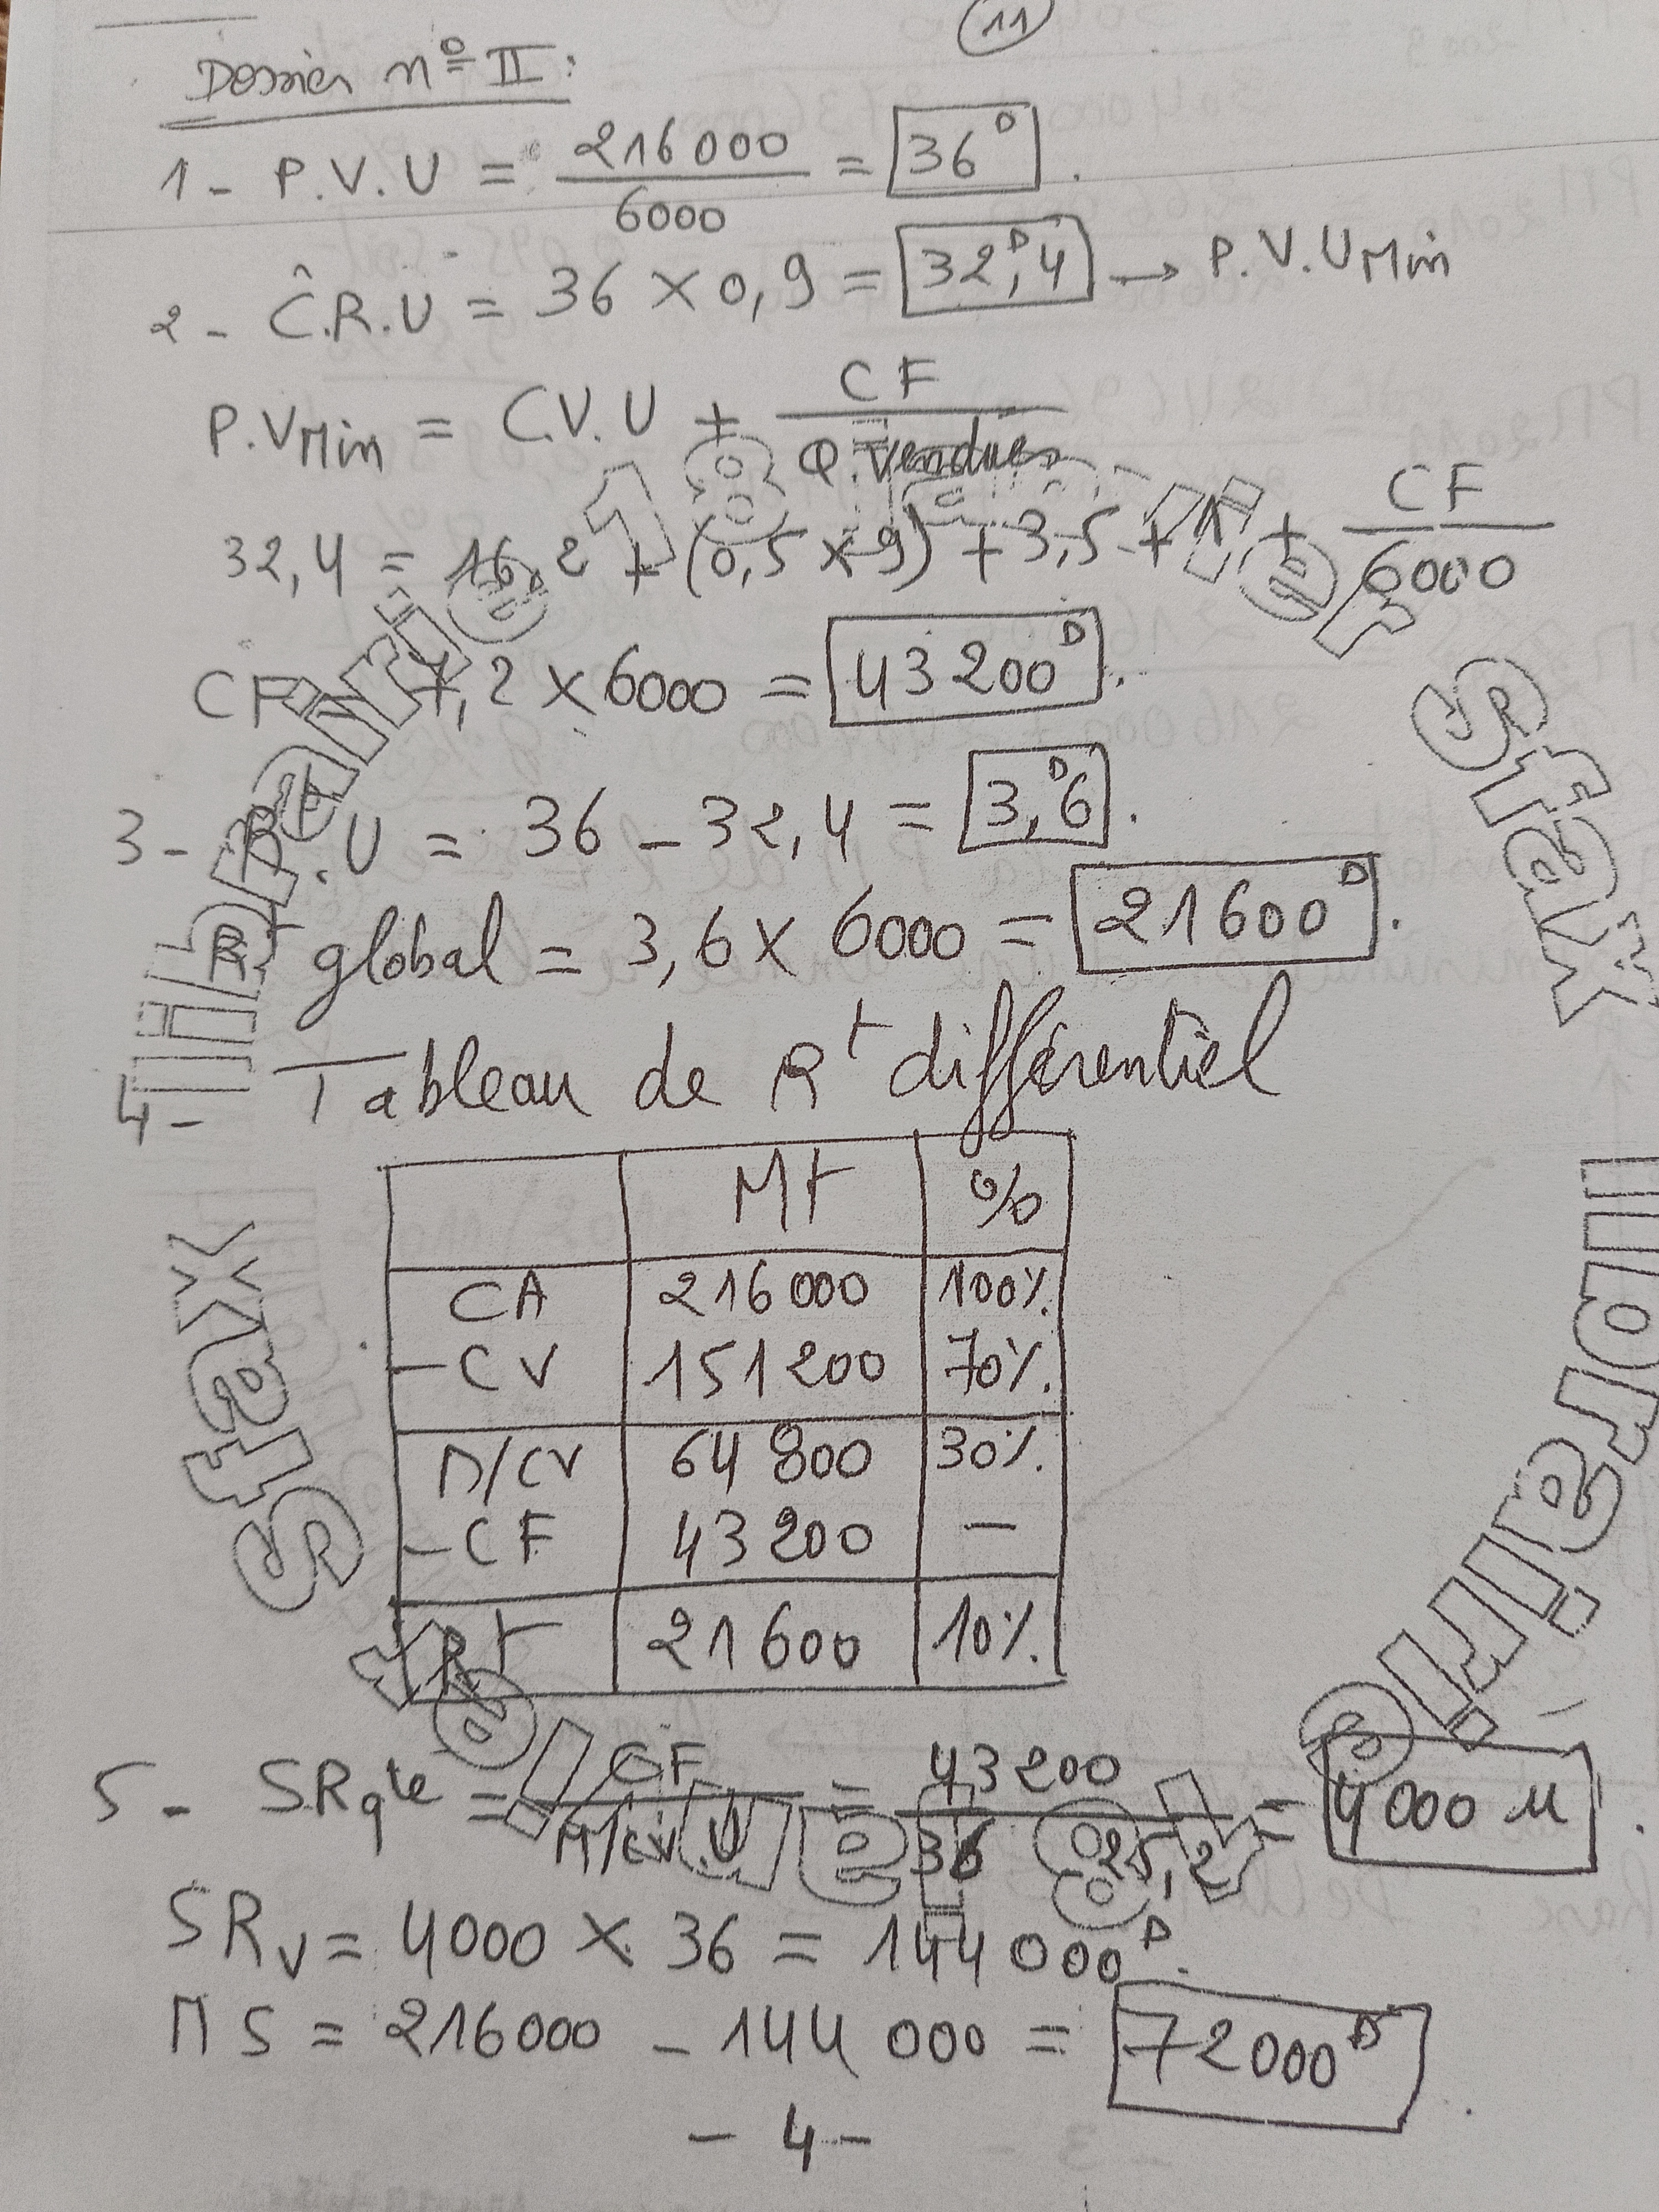 11
Dossier n° II :
1 - P.V.U = 216 000 / 6000 = 36 D.
2 - Ĉ.R.U = 36 x 0,9 = 32,4 D → P.V.U Min
P.V Min = C.V.U + CF / Q. Vendues
32,4 = 16,2 + (0,5 x 9) + 3,5 + 1 + CF / 6000
CF = 7,2 x 6000 = 43 200 D.
3 - Rt.U = 36 - 32,4 = 3,6 D.
Rt global = 3,6 x 6000 = 21 600 D.
4 - Tableau de Rt différentiel
Mt %
CA 216 000 100%
- CV 151 200 70%
M/CV 64 800 30%
- CF 43 200 -
Rt 21 600 10%
5 - SR qté = CF / M/CV.U = 43 200 / 36 - 25,2 = 4 000 u.
SRv = 4000 x 36 = 144 000 D.
MS = 216 000 - 144 000 = 72 000 D.
- 4 -
librairie
Sfax
librairie
Sfax